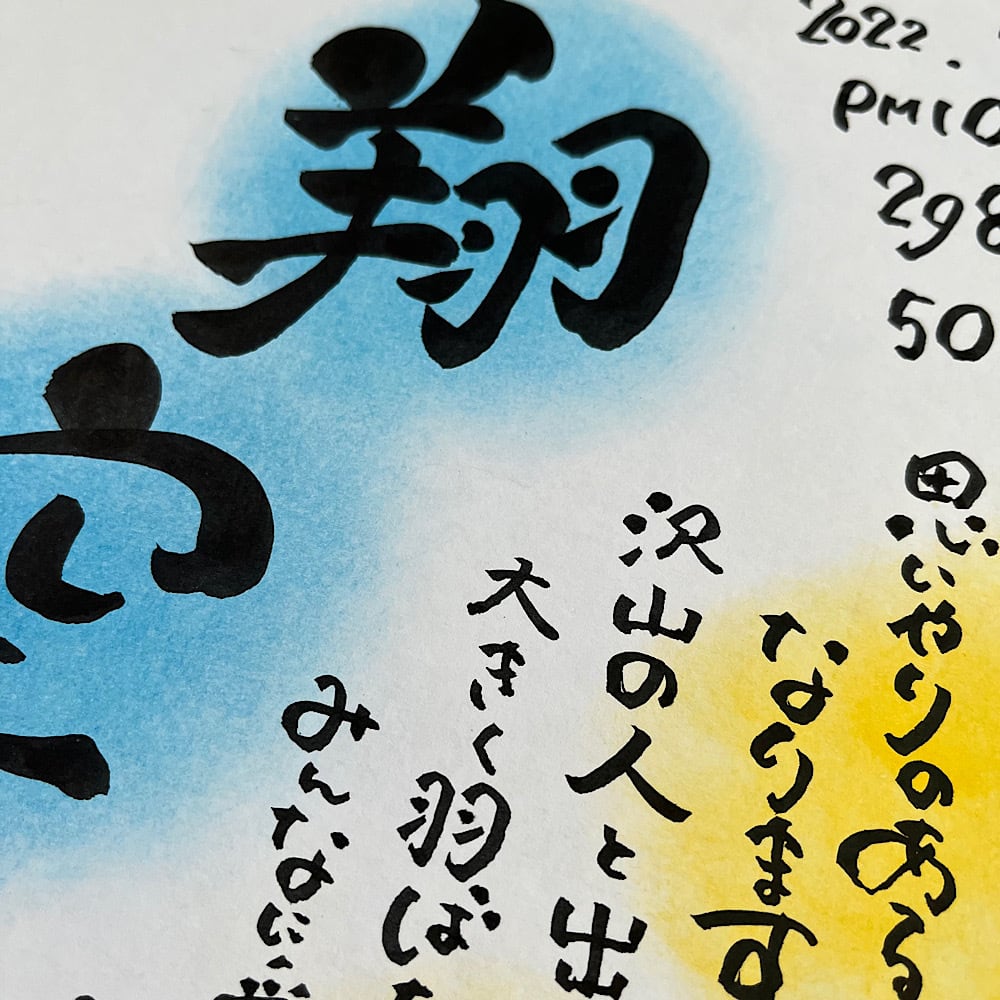 翔
空
2022.
PM10
298
50
思いやりのある
なります
沢山の人と出
大きく羽ば
みんなに